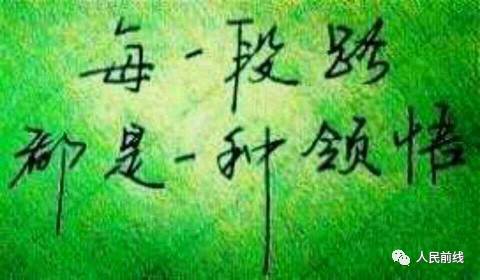 每一段路
都是一种领悟
人民前线